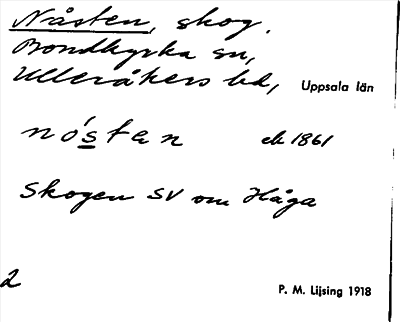 Nåsten, skog.
Bondkyrka sn,
Ulleråkers hd, Uppsala län
nó̀sten ek 1861
Skogen SV om Håga
2
P. M. Lijsing 1918